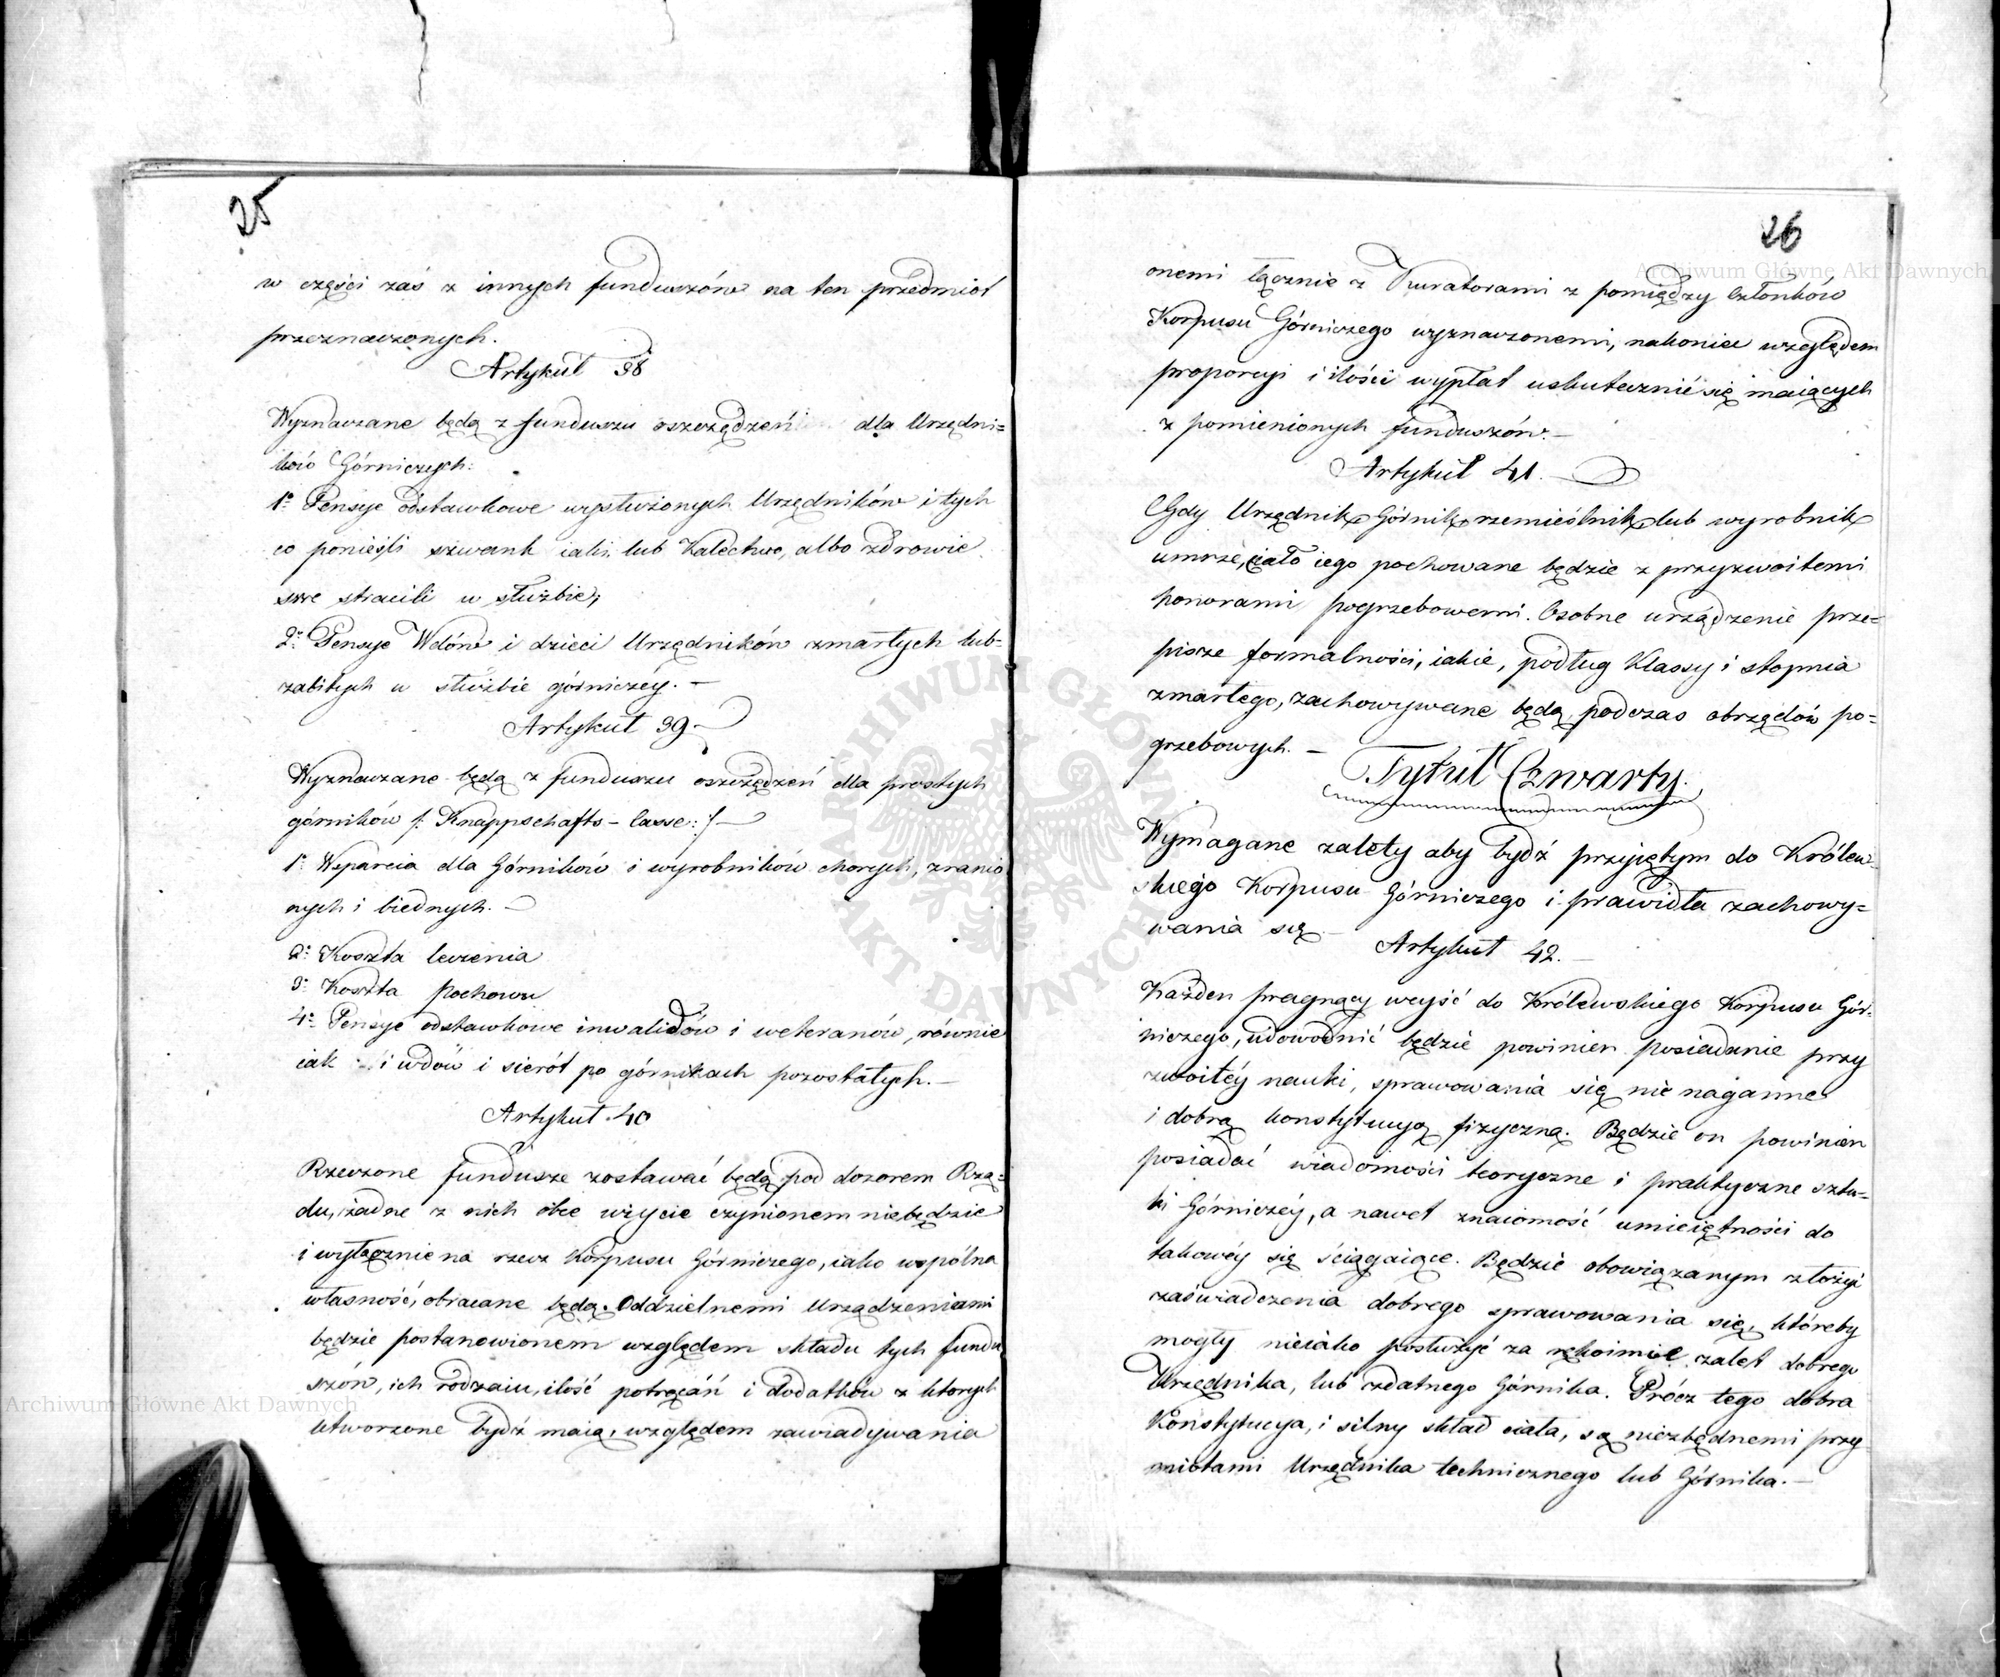 25
w części zaś z innych funduszów na ten przedmiot
przeznaczonych.
Artykuł 38
Wyznaczane będą z funduszu oszczędzeń dla Urzędni=
ków Górniczych:
1º Pensye odstawkowe wysłużonych Urzędników i tych
co ponieśli szwank iaki, lub Kalectwo, albo zdrowie
swe stracili w służbie;
2º Pensye Wdów i dzieci Urzędników zmarłych lub=
zabitych w służbie górniczéy. –
Artykuł 39 –
Wyznaczane będą z funduszu oszczędzeń dla prostych
górników /: Knappschafts – casse :/ –
1º Wsparcia dla Górników i wyrobników chorych, zranio
nych i biednych. –
2º Koszta leczenia
3º Koszta pochowu
4º Pensye odstawkowe inwalidów i weteranów, równie
iak i wdów i sierót po górnikach pozostałych. –
Artykuł 40
Rzeczone fundusze zostawać będą pod dozorem Rzą=
du, żadne z nich obce użycie czynionem niebędzie
i wyłącznie na rzecz Korpusu Górniczego, iako wspólna
własność, obracane będą. Oddzielnemi Urządzeniami
będzie postanowionem względem składu tych fundu
szów, ich rodzaiu, ilość potrąceń i dodatków z ktorych
utworzone bydź maią, względem zawiadywania
26
onemi łącznie z Kuratorami z pomiędzy Członków
Korpusu Górniczego wyznaczonemi, nakoniec względem
proporcyi i ilości wypłat uskutecznić się maiących
z pomienionych funduszów. –
Artykuł 41. –
Gdy Urzędnik, Górnik, rzemieślnik, lub wyrobnik
umrze, ciało iego pochowane będzie z przyzwoitemi
honorami pogrzebowemi. Osobne urządzenie prze=
pisze formalności, iakie, podług Klassy i stopnia
zmarłego, zachowywane będą podczas obrzędów po=
grzebowych. –
Tytuł Czwarty.
Wymagane zalety aby bydź przyiętym do Królew=
skiego Korpusu Górniczego i prawidła zachowy=
wania się
Artykuł 42. –
Każden pragnący weyść do Królewskiego Korpusu Gór=
niczego, udowodnić będzie powinien posiadanie przy
zwoitéy nauki, sprawowania się nienaganne
i dobrą konstytucyą fizyczną. Będzie on powinien
posiadać wiadomości teoryczne i praktyczne sztu=
ki Górniczéy, a nawet znaiomość umieiętności do
takowéy się ściągaiące. Będzie obowiązanym złożyć
zaświadczenia dobrego sprawowania się, któreby
mogły nieiako posłużyć za rękoimie zalet dobrego
Urzędnika, lub zdatnego Górnika. Prócz tego dobra
Konstytucya, i silny skład ciała, są niezbędnemi przy
miotami Urzędnika technicznego lub Górnika. –
Archiwum Główne Akt Dawnych
Archiwum Główne Akt Dawnych
ARCHIWUM GŁÓWNE AKT DAWNYCH